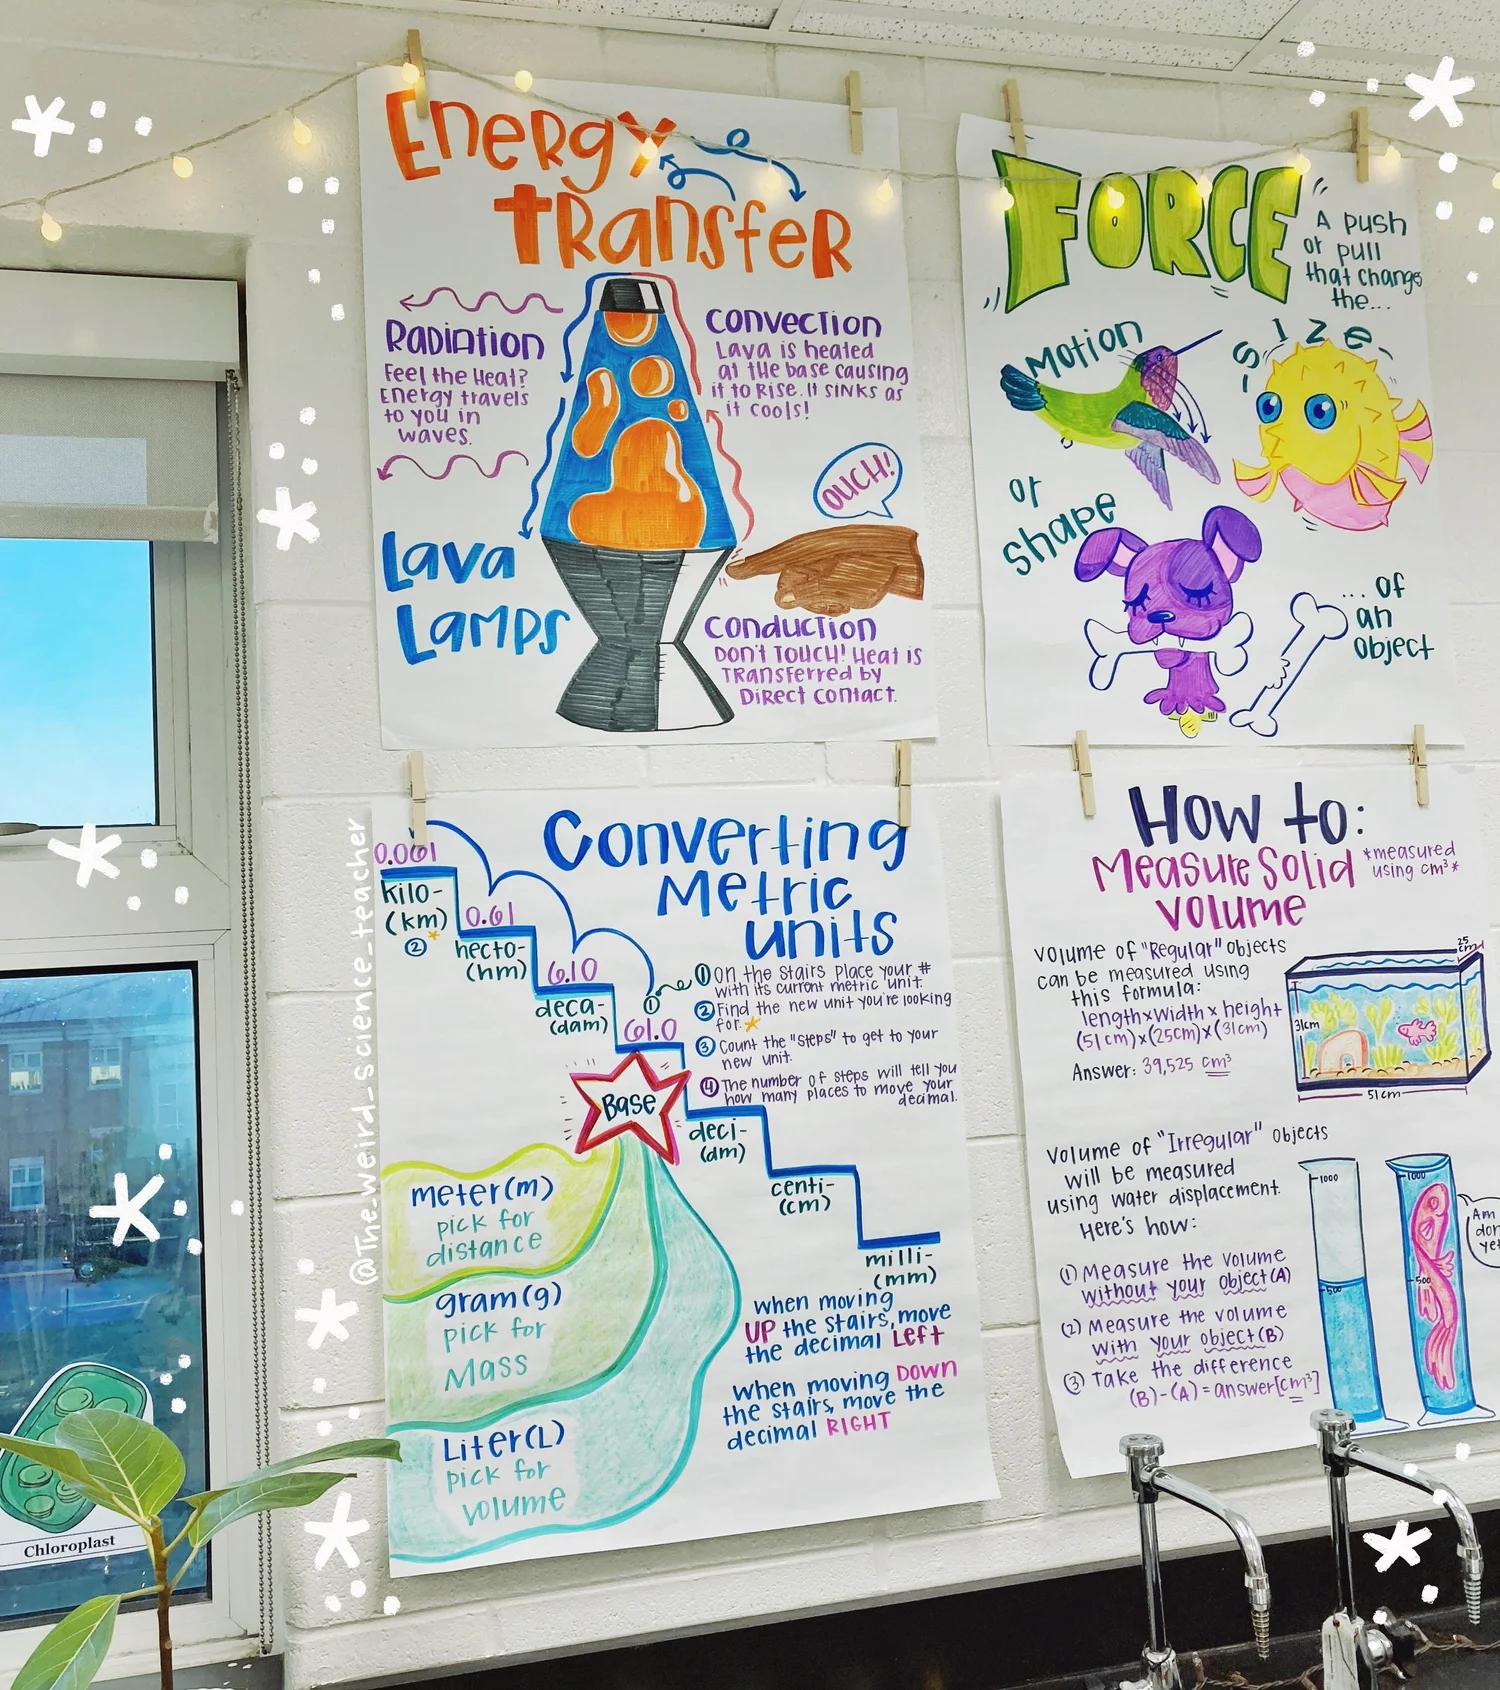 Energy
Transfer
Radiation
Feel the Heat?
Energy travels
to you in
waves.
Convection
Lava is heated
at the base causing
it to rise. It sinks as
it cools!
OUCH!
Lava
Lamps
Conduction
Don't Touch! Heat is
Transferred by
Direct Contact.
FORCE
A push
or pull
that changes
the...
Motion
-Size-
or
shape
... of
an
object
Converting
Metric
units
0.061
kilo-
(km)
②*
0.61
hecto-
(hm)
6.10
deca-
(dam)
①
61.0
Base
deci-
(dm)
centi-
(cm)
milli-
(mm)
① On the stairs place your #
with its current metric unit.
② Find the new unit you're looking
for.
③ Count the "steps" to get to your
new unit.
④ The number of steps will tell you
how many places to move your
decimal.
meter(m)
pick for
distance
gram(g)
pick for
Mass
Liter(L)
pick for
volume
when moving
UP the stairs, move
the decimal Left
when moving DOWN
the stairs, move the
decimal RIGHT
How to:
Measure Solid
Volume
*measured
using cm³*
Volume of "Regular" objects
can be measured using
this formula:
length x width x height
(51cm)x(25cm)x(31cm)
Answer: 39,525 cm³
25
cm
31cm
51cm
Volume of "Irregular" objects
will be measured
using water displacement.
Here's how:
(1) Measure the volume
without your object(A)
(2) Measure the volume
with your object(B)
(3) Take the difference
(B)-(A)=answer[cm³]
1000
500
1000
500
Am
don
yet
@The_weird_science_teacher
Chloroplast